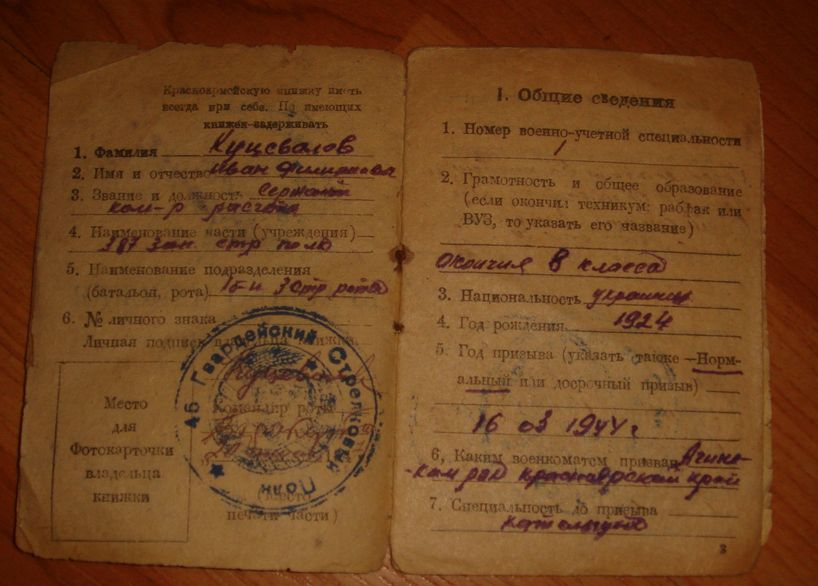 Красноармейскую книжку иметь
всегда при себе. Не имеющих
книжек задерживать
1. Фамилия Куцевалов
2. Имя и отчество Иван
3. Звание и должность сержант
ком-р расчета
4. Наименование части (учреждения)
387 Зап. стр полк
5. Наименование подразделения
(батальон, рота) 1б-н 3 стр рота
6. № личного знака
Личная подпись владельца книжки
Командир роты
Место
для
Фотокарточки
владельца
книжки
(Место
печати части)
Гвардейский Стрелковый Полк
I. Общие сведения
1. Номер военно-учетной специальности
1
2. Грамотность и общее образование
(если окончил техникум, рабфак или
ВУЗ, то указать его название)
Окончил 8 класса
3. Национальность украинец
4. Год рождения 1924
5. Год призыва (указать также —Норм-
альный или досрочный призыв)
16 03 1944 г
6, Каким военкоматом призван Ачинс-
-ким рвк красноярский край
7. Специальность до призыва
3